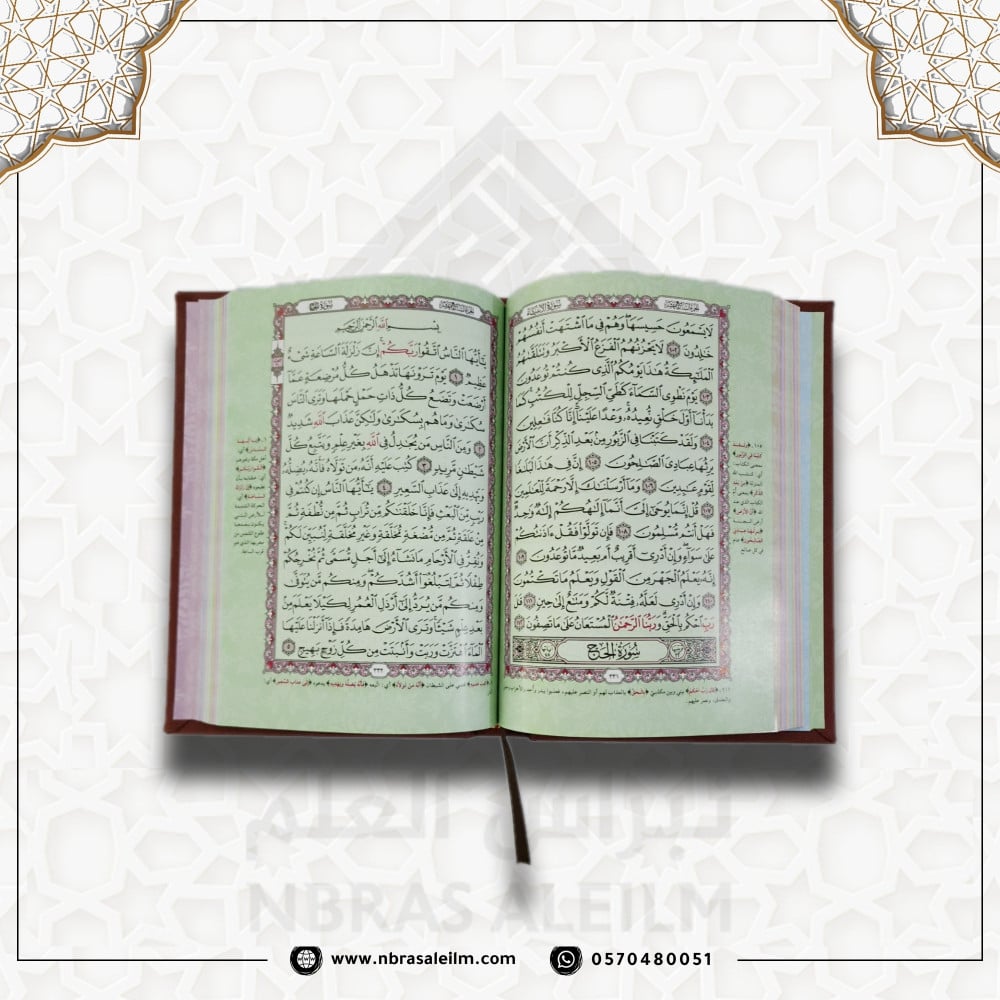 سُورَةُ الأنبيَاء
لَا يَسْمَعُونَ حَسِيسَهَا ۖ وَهُمْ فِي مَا ٱشْتَهَتْ أَنفُسُهُمْ
خَٰلِدُونَ ١٠٢ لَا يَحْزُنُهُمُ ٱلْفَزَعُ ٱلْأَكْبَرُ وَتَتَلَقَّىٰهُمُ
ٱلْمَلَٰٓئِكَةُ هَٰذَا يَوْمُكُمُ ٱلَّذِي كُنتُمْ تُوعَدُونَ
١٠٣ يَوْمَ نَطْوِي ٱلسَّمَآءَ كَطَيِّ ٱلسِّجِلِّ لِلْكُتُبِ ۚ كَمَا
بَدَأْنَآ أَوَّلَ خَلْقٍ نُّعِيدُهُۥ ۚ وَعْدًا عَلَيْنَآ ۚ إِنَّا كُنَّا فَٰعِلِينَ
١٠٤ وَلَقَدْ كَتَبْنَا فِي ٱلزَّبُورِ مِنۢ بَعْدِ ٱلذِّكْرِ أَنَّ ٱلْأَرْضَ
يَرِثُهَا عِبَادِيَ ٱلصَّٰلِحُونَ ١٠٥ إِنَّ فِي هَٰذَا لَبَلَٰغًا
لِّقَوْمٍ عَٰبِدِينَ ١٠٦ وَمَآ أَرْسَلْنَٰكَ إِلَّا رَحْمَةً لِّلْعَٰلَمِينَ
١٠٧ قُلْ إِنَّمَا يُوحَىٰٓ إِلَيَّ أَنَّمَآ إِلَٰهُكُمْ إِلَٰهٌ وَٰحِدٌ ۖ
فَهَلْ أَنتُم مُّسْلِمُونَ ١٠٨ فَإِن تَوَلَّوْا۟ فَقُلْ ءَاذَنتُكُمْ
عَلَىٰ سَوَآءٍ ۖ وَإِنْ أَدْرِيٓ أَقَرِيبٌ أَم بَعِيدٌ مَّا تُوعَدُونَ ١٠٩
إِنَّهُۥ يَعْلَمُ ٱلْجَهْرَ مِنَ ٱلْقَوْلِ وَيَعْلَمُ مَا تَكْتُمُونَ
١١٠ وَإِنْ أَدْرِي لَعَلَّهُۥ فِتْنَةٌ لَّكُمْ وَمَتَٰعٌ إِلَىٰ حِينٍ ١١١ قَٰلَ
رَبِّ ٱحْكُم بِٱلْحَقِّ ۗ وَرَبُّنَا ٱلرَّحْمَٰنُ ٱلْمُسْتَعَانُ عَلَىٰ مَا تَصِفُونَ ١١٢
سُورَةُ الحَج
٣٣١
سُورَةُ الحَج
بِسْمِ ٱللَّهِ ٱلرَّحْمَٰنِ ٱلرَّحِيمِ
يَٰٓأَيُّهَا ٱلنَّاسُ ٱتَّقُوا۟ رَبَّكُمْ ۚ إِنَّ زَلْزَلَةَ ٱلسَّاعَةِ شَيْءٌ
عَظِيمٌ ١ يَوْمَ تَرَوْنَهَا تَذْهَلُ كُلُّ مُرْضِعَةٍ عَمَّآ
أَرْضَعَتْ وَتَضَعُ كُلُّ ذَاتِ حَمْلٍ حَمْلَهَا وَتَرَى ٱلنَّاسَ
سُكَٰرَىٰ وَمَا هُم بِسُكَٰرَىٰ وَلَٰكِنَّ عَذَابَ ٱللَّهِ شَدِيدٌ
٢ وَمِنَ ٱلنَّاسِ مَن يُجَٰدِلُ فِي ٱللَّهِ بِغَيْرِ عِلْمٍ وَيَتَّبِعُ كُلَّ
شَيْطَٰنٍ مَّرِيدٍ ٣ كُتِبَ عَلَيْهِ أَنَّهُۥ مَن تَوَلَّاهُ فَأَنَّهُۥ يُضِلُّهُۥ
وَيَهْدِيهِ إِلَىٰ عَذَابِ ٱلسَّعِيرِ ٤ يَٰٓأَيُّهَا ٱلنَّاسُ إِن كُنتُمْ فِي
رَيْبٍ مِّنَ ٱلْبَعْثِ فَإِنَّا خَلَقْنَٰكُم مِّن تُرَابٍ ثُمَّ مِن نُّطْفَةٍ ثُمَّ
مِنْ عَلَقَةٍ ثُمَّ مِن مُّضْغَةٍ مُّخَلَّقَةٍ وَغَيْرِ مُخَلَّقَةٍ لِّنُبَيِّنَ لَكُمْ ۚ
وَنُقِرُّ فِي ٱلْأَرْحَامِ مَا نَشَآءُ إِلَىٰٓ أَجَلٍ مُّسَمًّى ثُمَّ نُخْرِجُكُمْ
طِفْلًا ثُمَّ لِتَبْلُغُوٓا۟ أَشُدَّكُمْ ۖ وَمِنكُم مَّن يُتَوَفَّىٰ
وَمِنكُم مَّن يُرَدُّ إِلَىٰٓ أَرْذَلِ ٱلْعُمُرِ لِكَيْلَا يَعْلَمَ مِنۢ
بَعْدِ عِلْمٍ شَيْـًٔا ۚ وَتَرَى ٱلْأَرْضَ هَامِدَةً فَإِذَآ أَنزَلْنَا عَلَيْهَا
ٱلْمَآءَ ٱهْتَزَّتْ وَرَبَتْ وَأَنۢبَتَتْ مِن كُلِّ زَوْجٍۭ بَهِيجٍ ٥
٣٣٢
نبراس العلم
NBRAS ALEILM
www.nbrasaleilm.com
0570480051